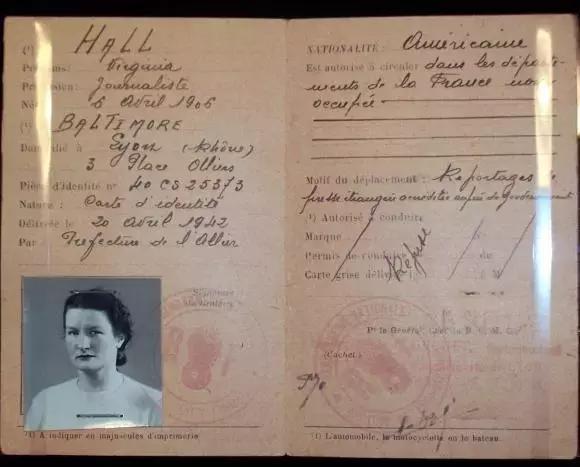 (¹) HALL
Prénoms: Virginia
Profession: Journaliste
Né 6 Avril 1906
(¹) BALTIMORE
Domicilié à Lyon (Rhône)
3 Place Ollier
Pièce d'identité n° 40 CS 25373
Nature: Carte d'identité
Délivrée le 20 Avril 1942
Par Préfecture de l'Allier
(¹) A indiquer en majuscules d'imprimerie
NATIONALITÉ: Américaine
Est autorisé à circuler dans les départe-
ments de la France non
occupée
Motif du déplacement: Reportages de
presse étrangère accréditée auprès du Gouvernement
(¹) Autorisé à conduire
Marque
Permis de conduire
Carte grise délivrée
Refusé
Pr le Général
(Cachet)
(¹) L'automobile, la motocyclette ou le bateau.